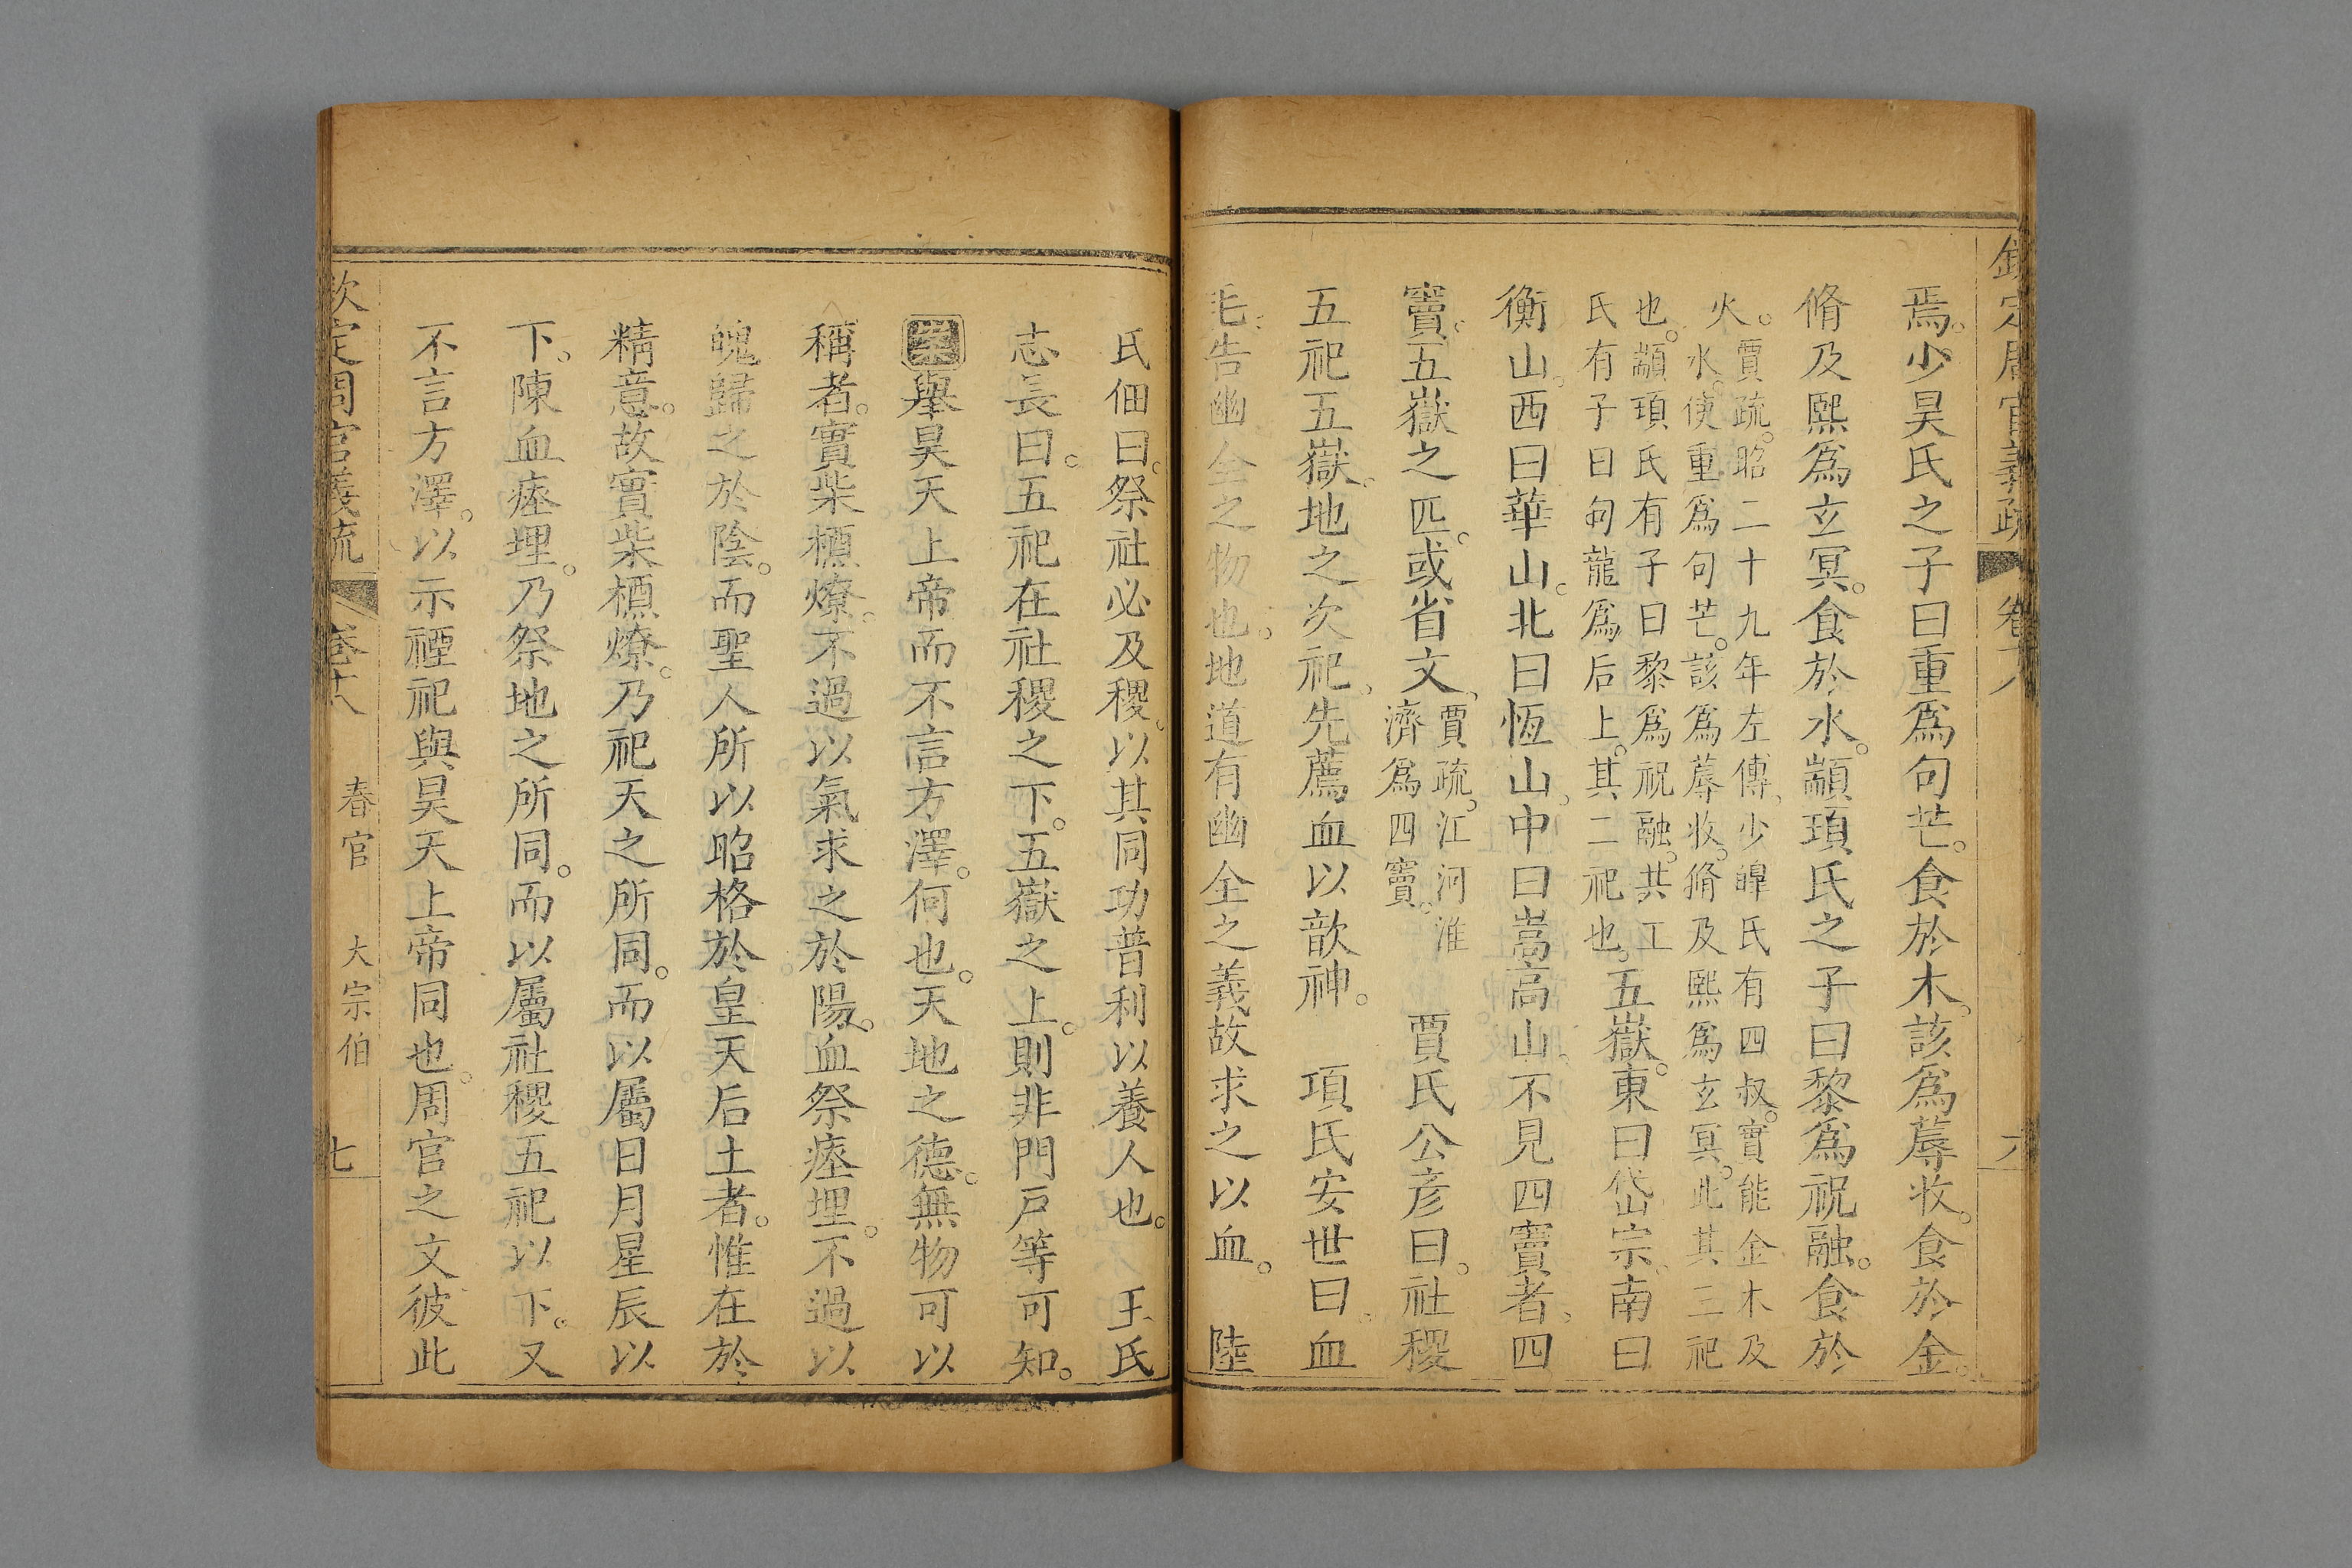 欽定周官義疏 卷十八 六
焉。少昊氏之子曰重為句芒。食於木。該為蓐收。食於金。
脩及熙為玄冥。食於水。顓頊氏之子曰黎為祝融。食於
火。賈疏。昭二十九年左傳、少皥氏有四叔。實能金木及
水。使重為句芒。該為蓐收。脩及熙為玄冥。此其三祀
也。顓頊氏有子曰黎為祝融。共工
氏有子曰句龍為后土。其二祀也。五嶽。東曰岱宗、南曰
衡山、西曰華山。北曰恆山、中曰嵩高山、不見四竇者、四
竇、五嶽之匹。或省文、賈疏、江河淮
濟為四竇。 賈氏公彥曰。社稷
五祀五嶽、地之次祀、先薦血以歆神。 項氏安世曰、血
毛、告幽全之物也。地道有幽全之義故求之以血。 陸
氏佃曰。祭社必及稷、以其同功普利以養人也。 王氏
志長曰。五祀在社稷之下。五嶽之上。則非門戸等可知。
案舉昊天上帝而不言方澤。何也。天地之德。無物可以
稱者。實柴槱燎。不過以氣求之於陽。血祭瘞埋。不過以
魄歸之於陰。而聖人所以昭格於皇天后土者。惟在於
精意。故實柴槱燎。乃祀天之所同。而以屬日月星辰以
下。陳血瘞埋。乃祭地之所同。而以屬社稷五祀以下。又
不言方澤。以示禋祀與昊天上帝同也。周官之文彼此
欽定周官義疏 卷十八 春官 大宗伯 七